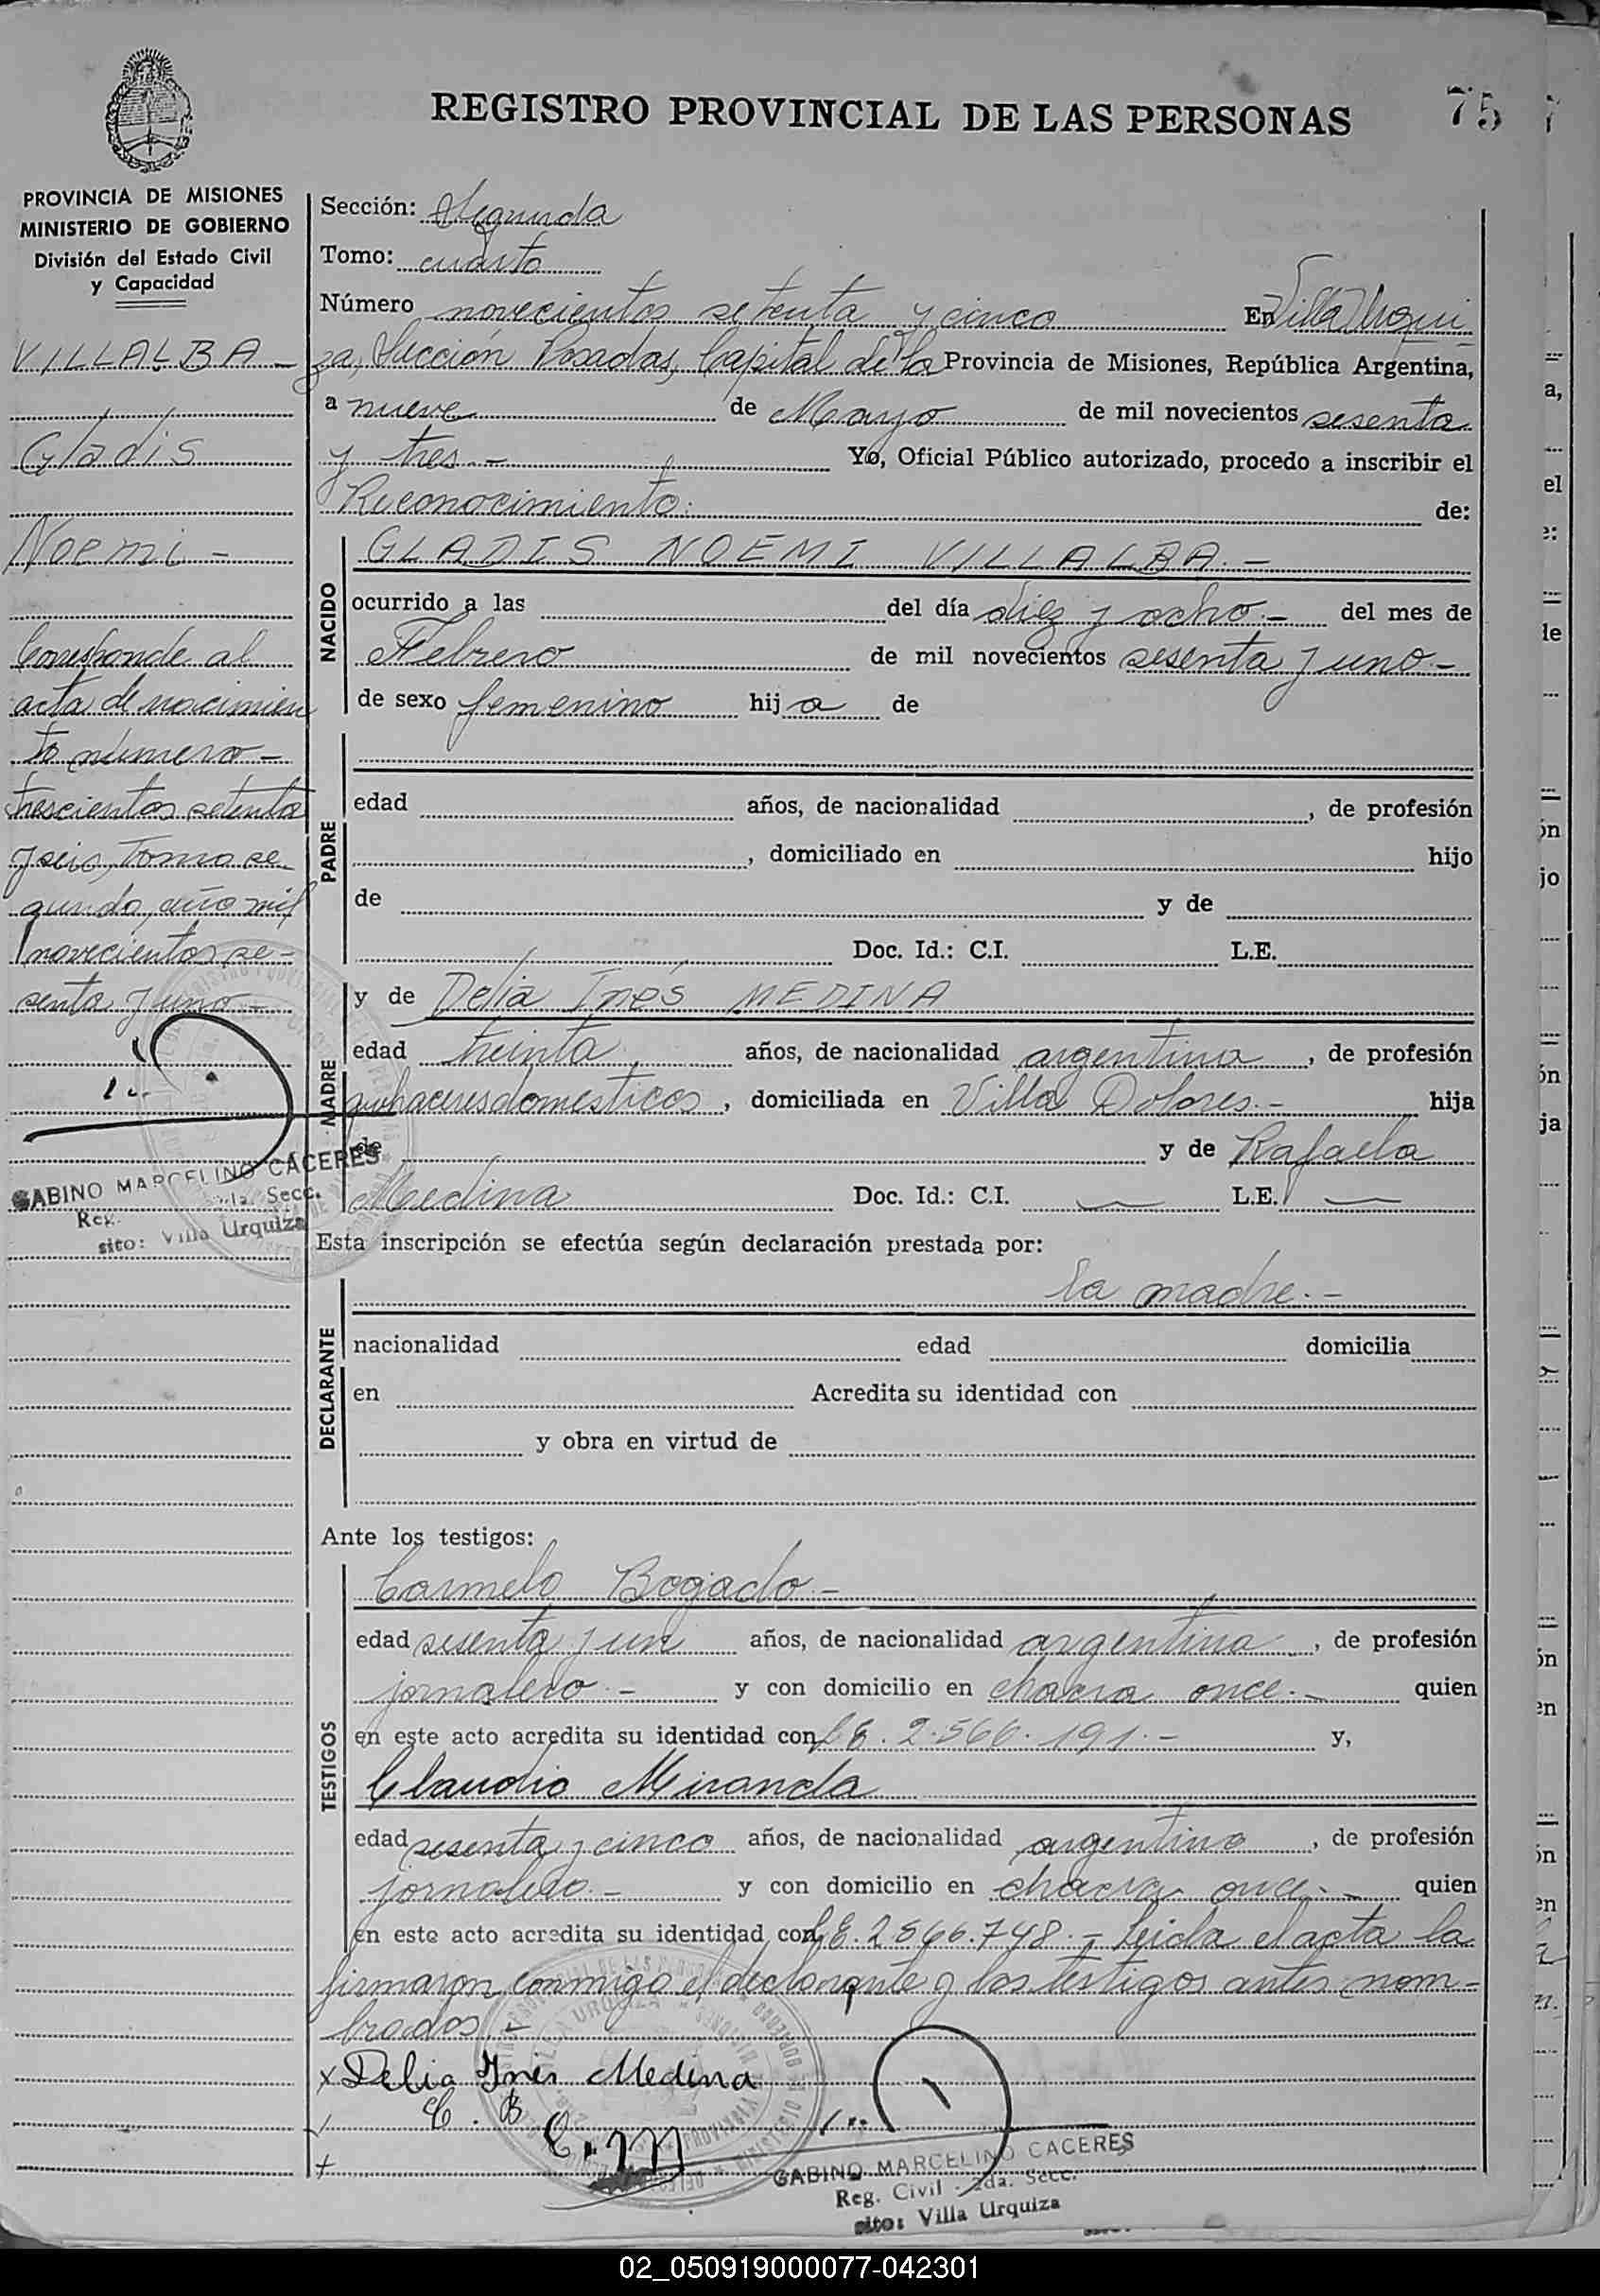 REGISTRO PROVINCIAL DE LAS PERSONAS
75
PROVINCIA DE MISIONES
MINISTERIO DE GOBIERNO
División del Estado Civil
y Capacidad
VILLALBA -
Gladis
Noemi -
Corresponde al
acta de nacimien
to número -
trescientos setenta
y seis, Tomo se
gundo, año mil
novecientos se-
senta y uno -
GABINO MARCELINO CACERES
Reg. 2da. Secc.
sito: Villa Urquiza
Sección: Segunda
Tomo: cuarto
Número novecientos setenta y cinco En Villa Urqui
za, Sección Posadas, Capital de la Provincia de Misiones, República Argentina,
a nueve de Mayo de mil novecientos sesenta
y tres.- Yo, Oficial Público autorizado, procedo a inscribir el
Reconocimiento: de:
NACIDO
GLADIS NOEMI VILLALBA.-
ocurrido a las del día diez y ocho.- del mes de
Febrero de mil novecientos sesenta y uno-
de sexo femenino hija de
PADRE
edad años, de nacionalidad , de profesión
, domiciliado en hijo
de y de
Doc. Id.: C.I. L.E.
MADRE
y de Delia Inés MEDINA
edad treinta años, de nacionalidad argentina , de profesión
quehaceres domesticos , domiciliada en Villa Dolores.- hija
de y de Rafaela
Medina Doc. Id.: C.I. — L.E. —
Esta inscripción se efectúa según declaración prestada por:
DECLARANTE
la madre.-
nacionalidad edad domicilia
en Acredita su identidad con
y obra en virtud de
Ante los testigos:
TESTIGOS
Carmelo Bogado.-
edad sesenta y un años, de nacionalidad argentina , de profesión
jornalero.- y con domicilio en chacra once.- quien
en este acto acredita su identidad con L.E. 2.566.191.- y,
Claudio Miranda
edad sesenta y cinco años, de nacionalidad argentino , de profesión
jornalero.- y con domicilio en chacra once.- quien
en este acto acredita su identidad con L.E. 2566.748.- Leida el acta la
firmaron conmigo el declarante y los testigos antes nom-
brados.-
x Delia Ines Medina
C. B
C. M
GABINO MARCELINO CACERES
Reg. Civil - 2da. Secc.
sito: Villa Urquiza
02_050919000077-042301